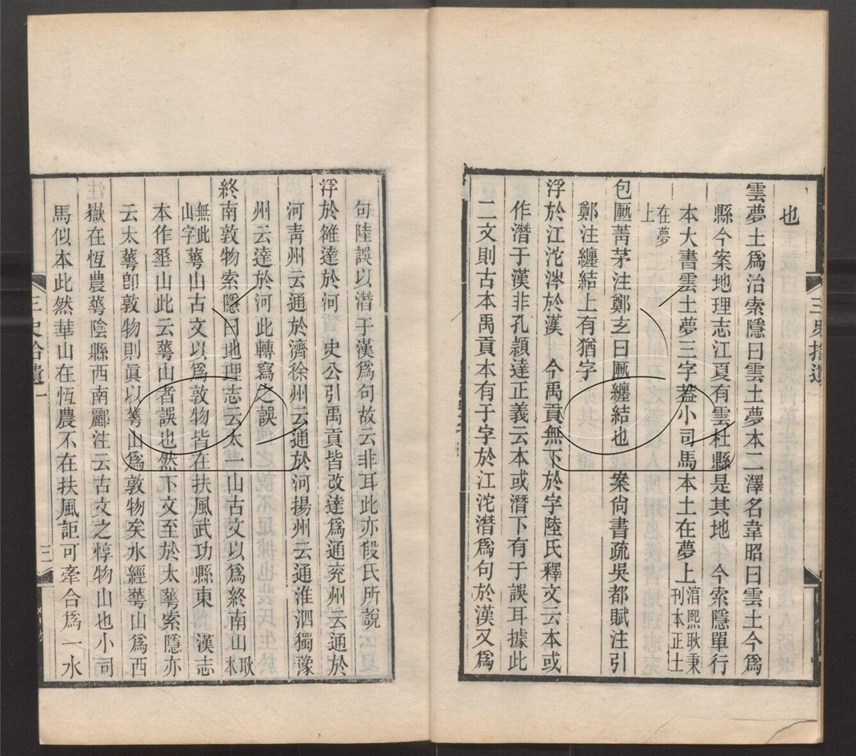 也
雲夢土爲治索隱曰雲土夢本二澤名韋昭曰雲土今爲
縣今案地理志江夏有雲杜縣是其地　今索隱單行
本大書雲土夢三字蓋小司馬本土在夢上淯熙耿秉刊本正土
在夢上
包匭菁茅注鄭玄曰匭纏結也　案尙書疏吳都賦注引
鄭注纏結上有猶字
浮於江沱涔於漢　今禹貢無下於字陸氏釋文云本或
作潛于漢非孔穎達正義云本或潛下有于誤耳據此
二文則古本禹貢本有于字於江沱潛爲句於漢又爲
三史拾遺
句陸誤以潛于漢爲句故云非耳此亦段氏所說
浮於雒達於河　史公引禹貢皆改達爲通兖州云通於
河青州云通於濟徐州云通於河揚州云通淮泗獨豫
州云達於河此轉寫之誤
終南敦物索隱曰地理志云太一山古文以爲終南山耿本
無此山字蕚山古文以爲敦物皆在扶風武功縣東　漢志
本作垂山此云蕚山者誤也然下文至於太蕚索隱亦
云太蕚卽敦物則眞以蕚山爲敦物矣水經蕚山爲西
嶽在恆農蕚陰縣西南酈注云古文之惇物山也小司
馬似本此然華山在恆農不在扶風詎可牽合爲一水
三史拾遺一
三